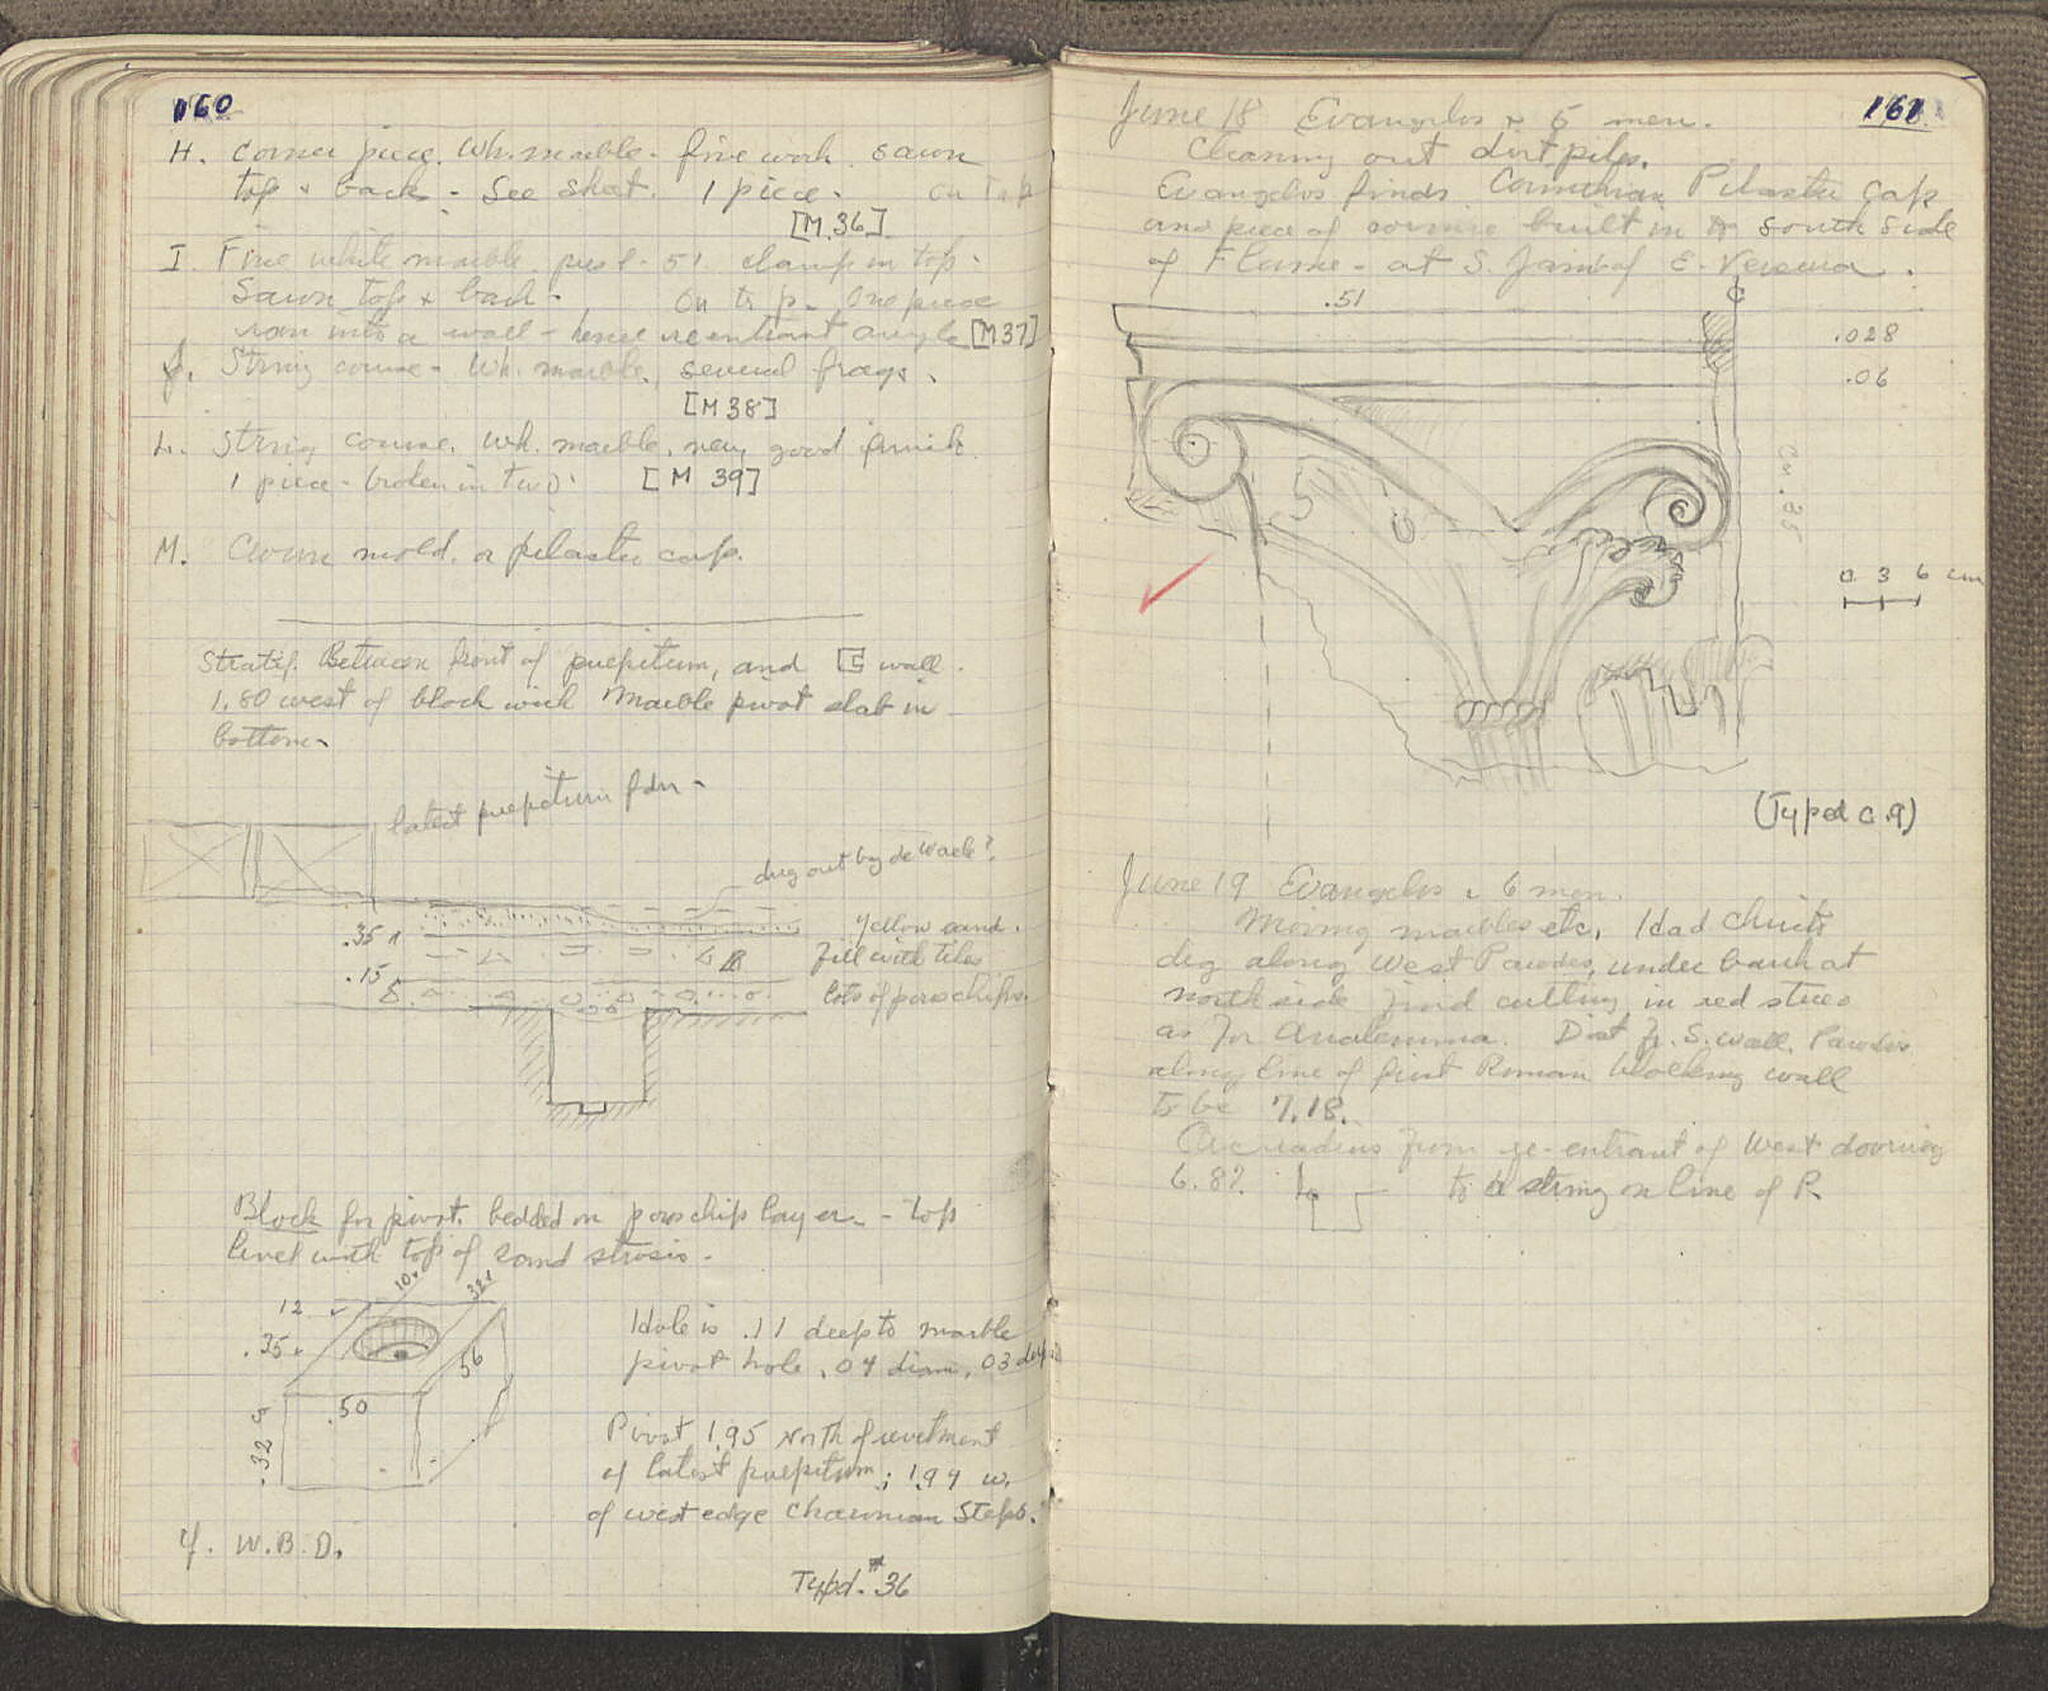 160
H. Corner piece. Wh. marble - fine work. sawn
top & back - See sheet. 1 piece. on top
[M.36]
I. Fine white marble. pres l. 51 clamp in top.
Sawn top & back. On top. One piece
ran into a wall - hence reentrant angle [M37]
J. String course - Wh. marble, several frags.
[M38]
L. String course. Wh. marble, very good finish.
1 piece - broken in two. [M 39]
M. Crown mold. a pilaster cap.
Stratif. Between front of pulpitum, and wall.
1.80 west of block with Marble pivot slab in
bottom.
latest pulpitum fdn.
dug out by de Waele?
.35 Yellow sand.
fill with tiles
.15 lots of poros chips.
Block for pivot. bedded on poros chip layer. - top
level with top of sand strosis.
10
32
12
.35
56
.50
.32 5
Hole is .11 deep to marble
pivot hole, .04 diam, .03 deep
Pivot 1.95 North of revetment
of latest pulpitum; 1.94 w.
of west edge Charonian Steps.
4. W.B.D.
Typd. #36
161
June 18 Evangelos & 5 men.
Cleaning out dirt piles.
Evangelos finds Corinthian Pilaster Cap
and piece of cornice built in to south side
of Flume - at S. Jamb of E. Versura.
.51
C
.028
.06
.35
0 3 6 cm
(Typed C.9)
June 19 Evangelos & 6 men.
Moving marbles etc. Had Christo
dig along West Parodos, under bank at
north side find cutting in red stereo
as for Analemma. Dist fr. S. wall. Parodos
along line of first Roman blocking wall
to be 7.18.
Arc radius from re-entrant of West doorway
6.82. to string on line of P.